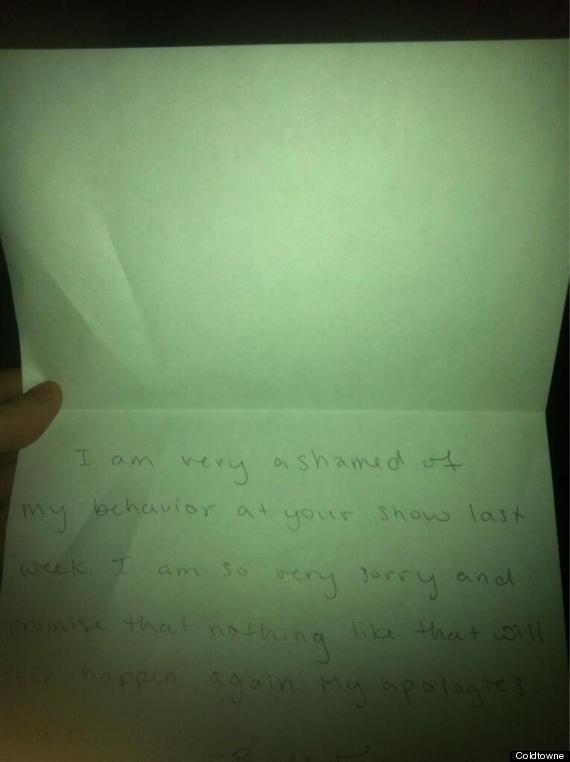 I am very ashamed of
my behavior at your show last
week. I am so very sorry and
promise that nothing like that will
ever happen again. My apologies
Coldtowne